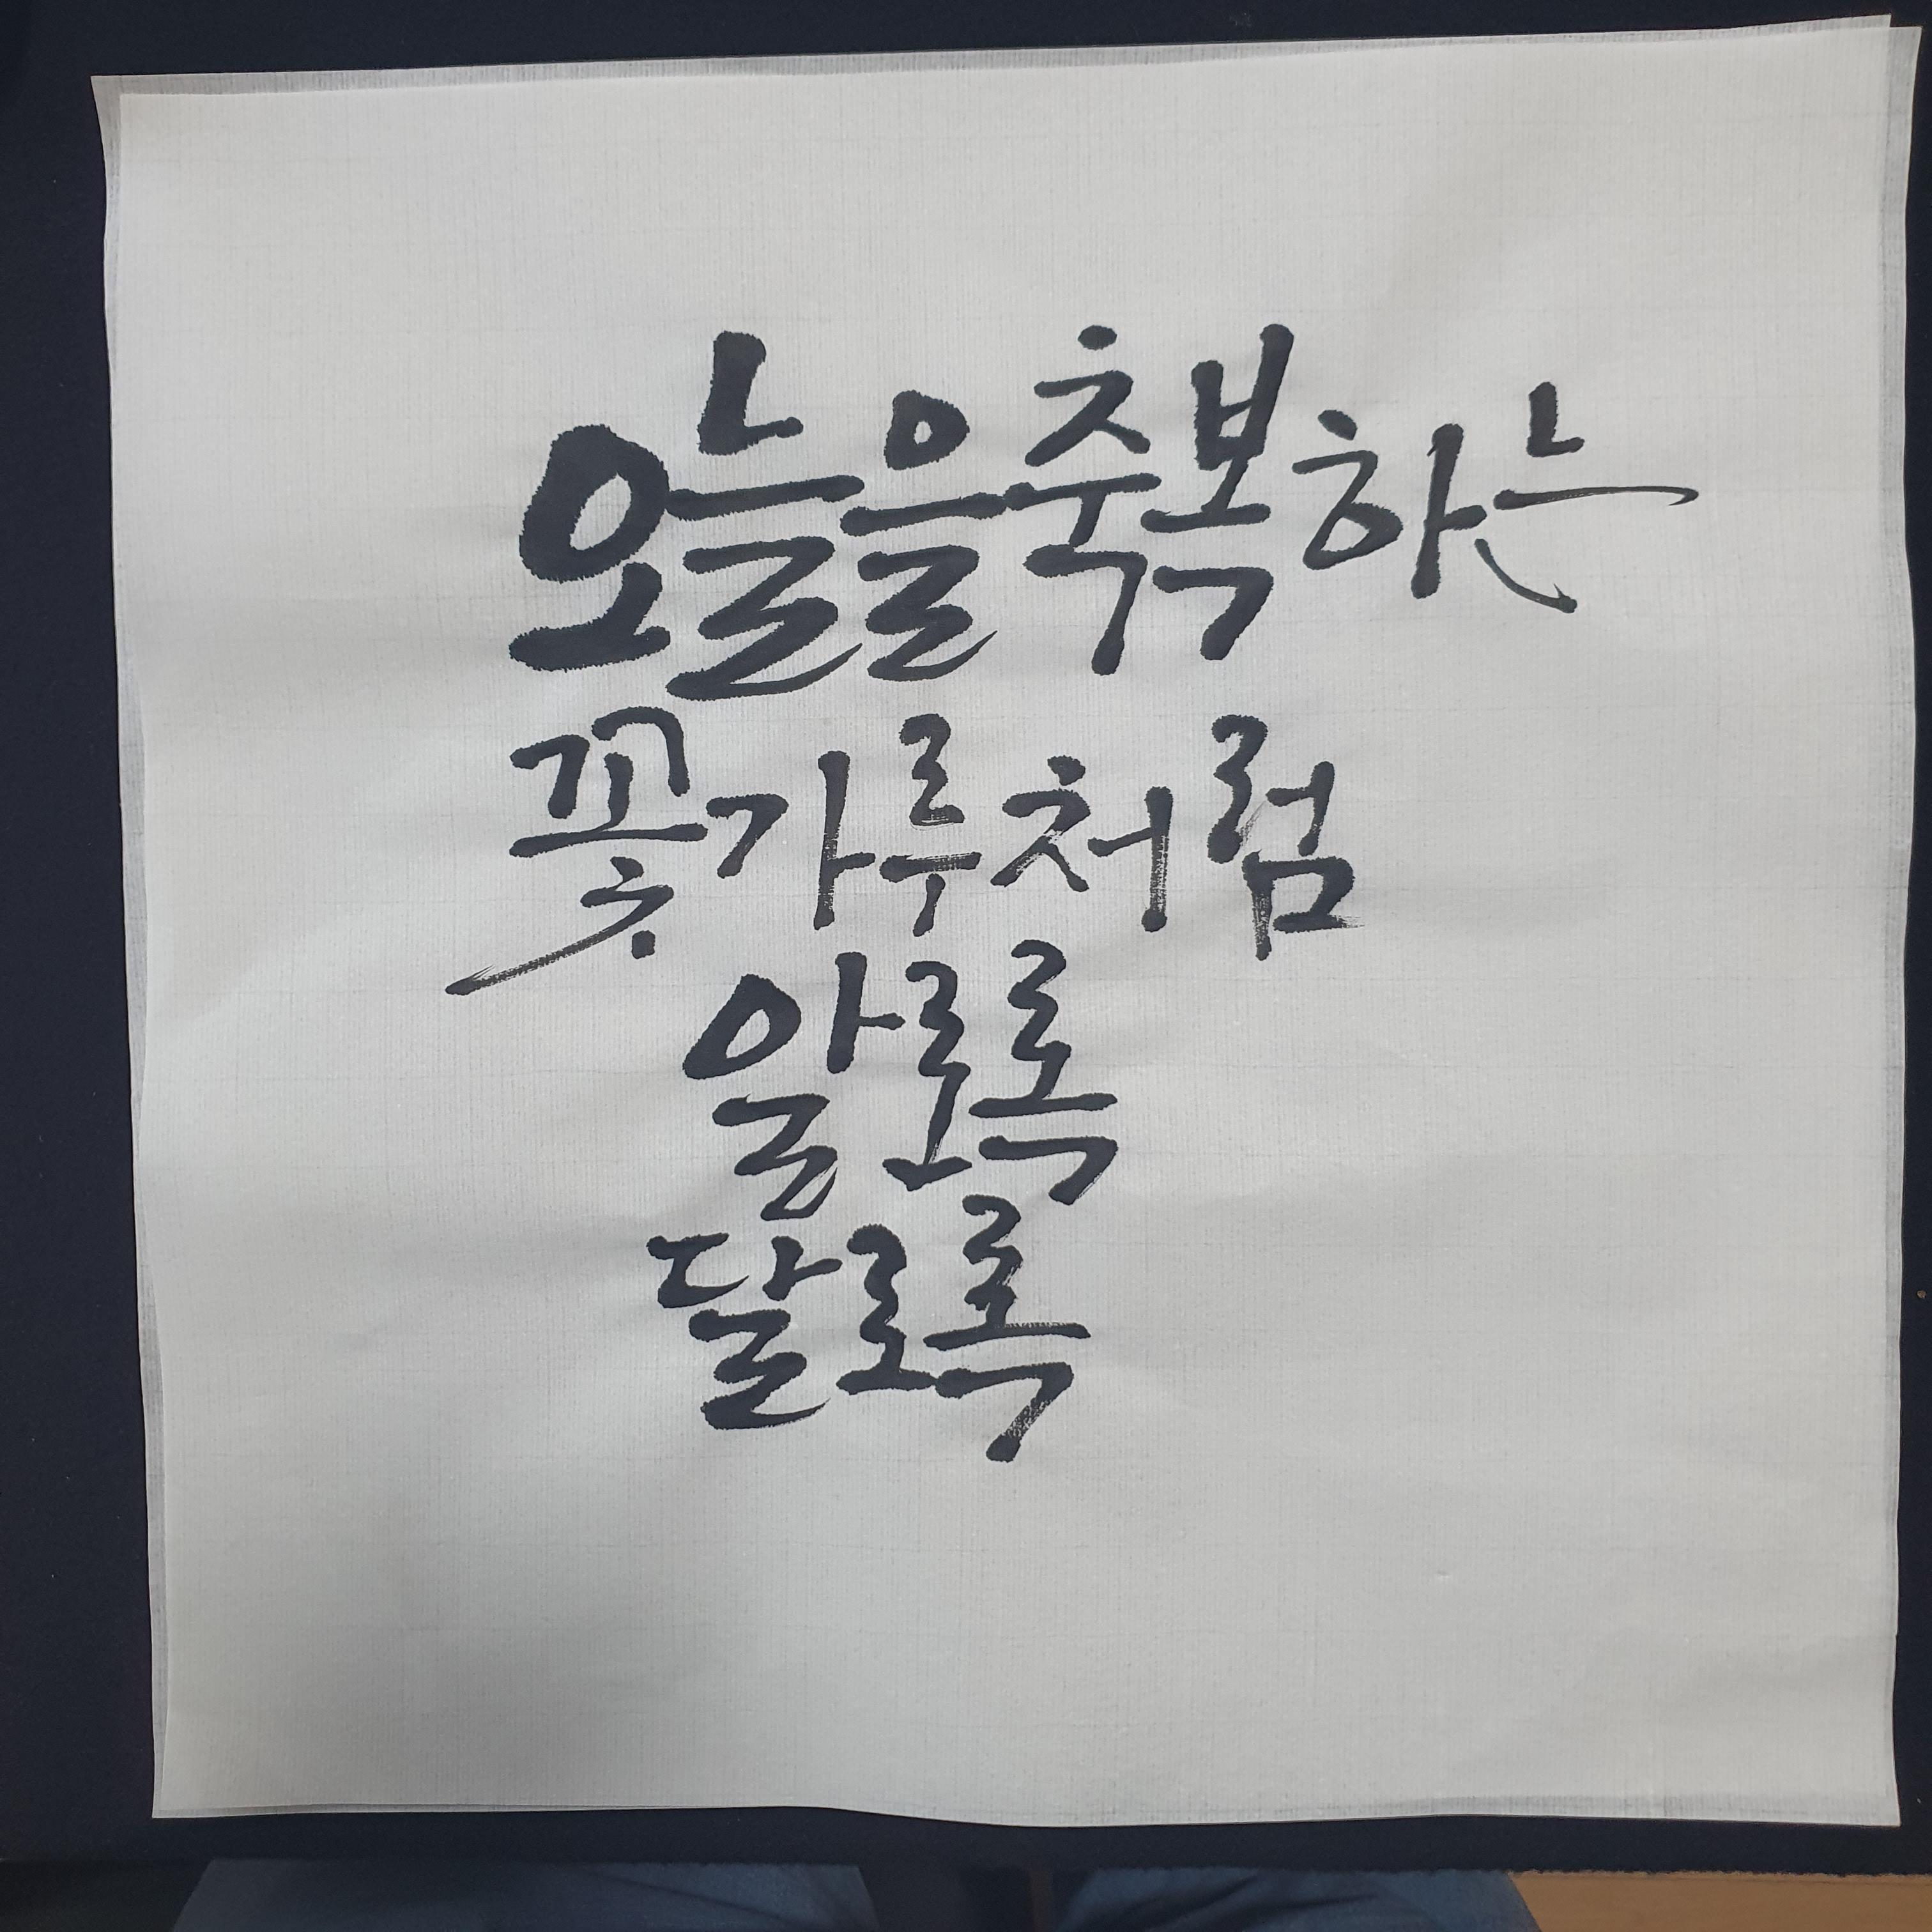 오늘을축복하는
꽃가루처럼
알로록
달로록